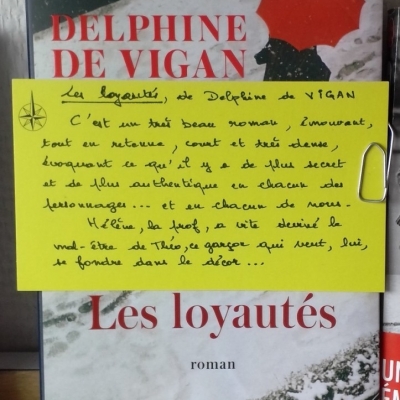 DELPHINE
DE VIGAN
Les loyautés, de Delphine de VIGAN
C'est un très beau roman, émouvant,
tout en retenue, court et très dense,
évoquant ce qu'il y a de plus secret
et de plus authentique en chacun des
personnages... et en chacun de nous.
Hélène, la prof, a vite deviné le
mal-être de Théo, ce garçon qui veut, lui,
se fondre dans le décor...
Les loyautés
roman
UN